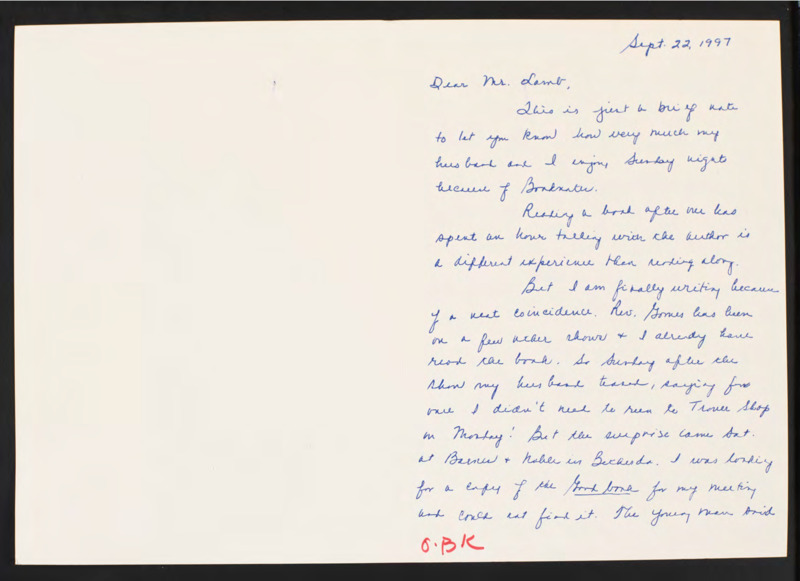 Sept. 22, 1997
Dear Mr. Lamb,
This is just a brief note
to let you know how very much my
husband and I enjoy Sunday nights
because of Booknotes.
Reading a book after one has
spent an hour talking with the author is
a different experience than reading along.
But I am finally writing because
of a neat coincidence. Rev. Gomes has been
on a few other shows + I already have
read the book. So Sunday after the
show my husband teased, saying for
once I didn't need to run to Trover Shop
on Monday! But the surprise came Sat.
at Barnes + Noble in Bethesda. I was looking
for a copy of the Good book for my meeting
and could not find it. The young man said
O.BK